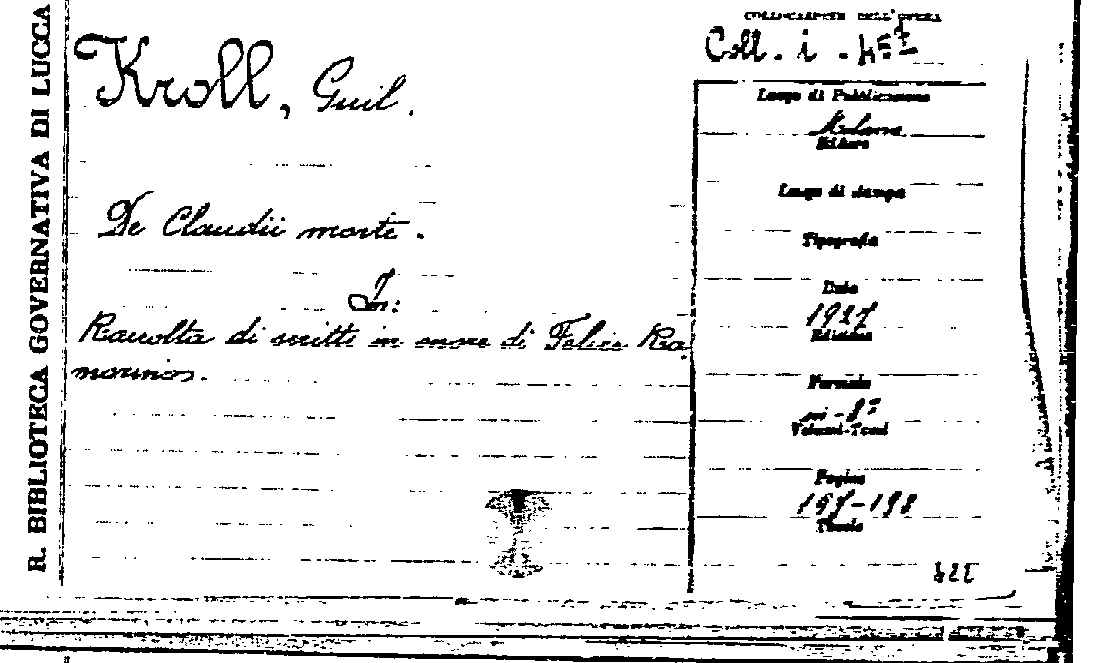 R. BIBLIOTECA GOVERNATIVA DI LUCCA
Kroll, Guil.
De Claudii morte.
In:
Raccolta di scritti in onore di Felice Ra
morino.
COLLOCAZIONE DELL'OPERA
Coll. i.
Luogo di Pubblicazione
Milano
Editore
Luogo di stampa
Tipografia
Data
1927
Edizione
Formato
in-8°
Volumi-Tomi
Pagine
197-198